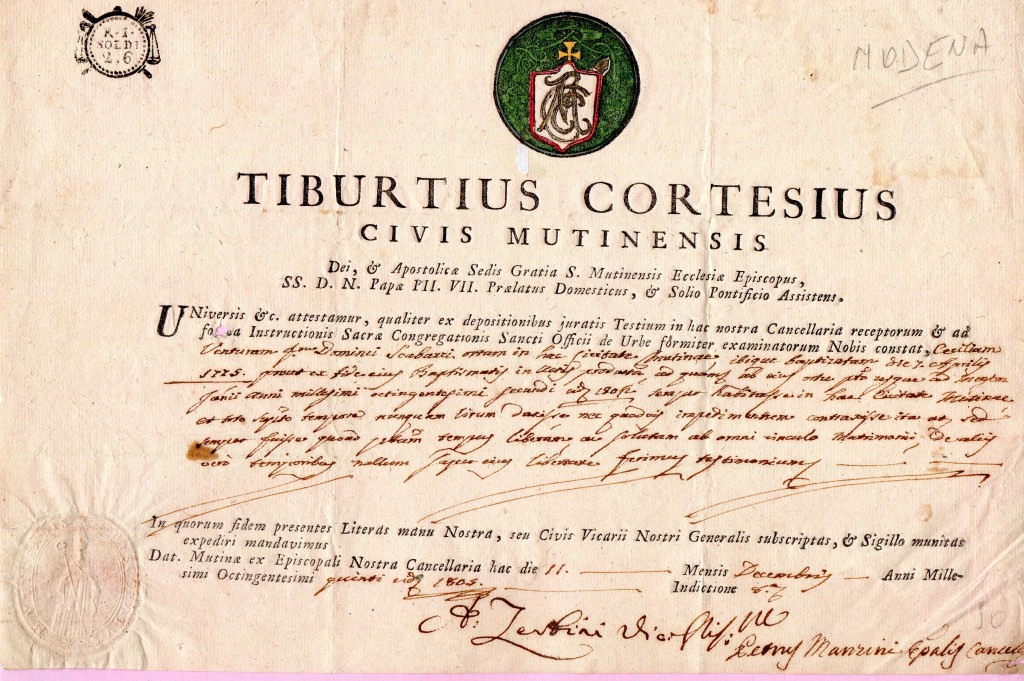 R. I.
SOLDI
2. 6
MODENA
TIBURTIUS CORTESIUS
CIVIS MUTINENSIS
Dei, & Apostolicæ Sedis Gratia S. Mutinensis Ecclesiæ Episcopus,
SS. D. N. Papæ PII. VII. Prælatus Domesticus, & Solio Pontificio Assistens.
UNiversis &c. attestamur, qualiter ex depositionibus juratis Testium in hac nostra Cancellaria receptorum & ad
formam Instructionis Sacræ Congregationis Sancti Officii de Urbe fórmiter examinatorum Nobis constat, Ceciliam
Venturam Dominici Scabarri ortam in hac Civitate Mutinae ibique baptizatam die 7. Aprilis
1775. prout ex fide ejus Baptismatis in Actis ad ab usque ad
Junii Anni millesimi octingentesimi secundi 1802. semper habitasse in hac Civitate Mutinae
et toto tempore nunquam virum duxisse nec quodvis impedimentum contraxisse ita ut, sed
semper fuisse quoad tempus liberam ac solutam ab omni vinculo Matrimonii, De aliis
vero temporibus nullum super ejus libertate ferimus testimonium
In quorum fidem presentes Literas manu Nostra, seu Civis Vicarii Nostri Generalis subscriptas, & Sigillo munitas
expediri mandavimus
Dat. Mutinæ ex Episcopali Nostra Cancellaria hac die 11. Mensis Decembris Anni Mille-
simi Octingentesimi quinti 1805. Indictione 8.
Zerbini
Petrus Manzini Cancell